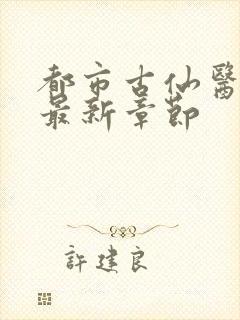 都市古仙醫
最新章節
許建良